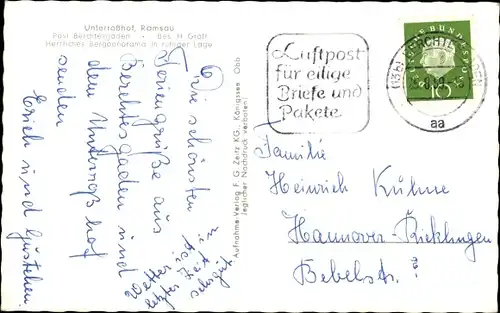 Unterroßhof, Ramsau
Post Berchtesgaden - Bes. H. Graßl
Herrliches Bergpanorama in ruhiger Lage
Die schönsten
Feriengrüße aus
Berchtesgaden und
dem Unterroßhof
senden
Erich und
Wetter
ist
sehr gut.
Aufnahme-Verlag F. G. Zeitz KG., Königssee Obb
Jeglicher Nachdruck verboten!
Luftpost
für eilige
Briefe und
Pakete
(13b) BERCHTESGADEN
aa
DEUTSCHE BUNDESPOST
10
Familie
Heinrich Kühne
Hannover-Ricklingen
Bebelstr. 8